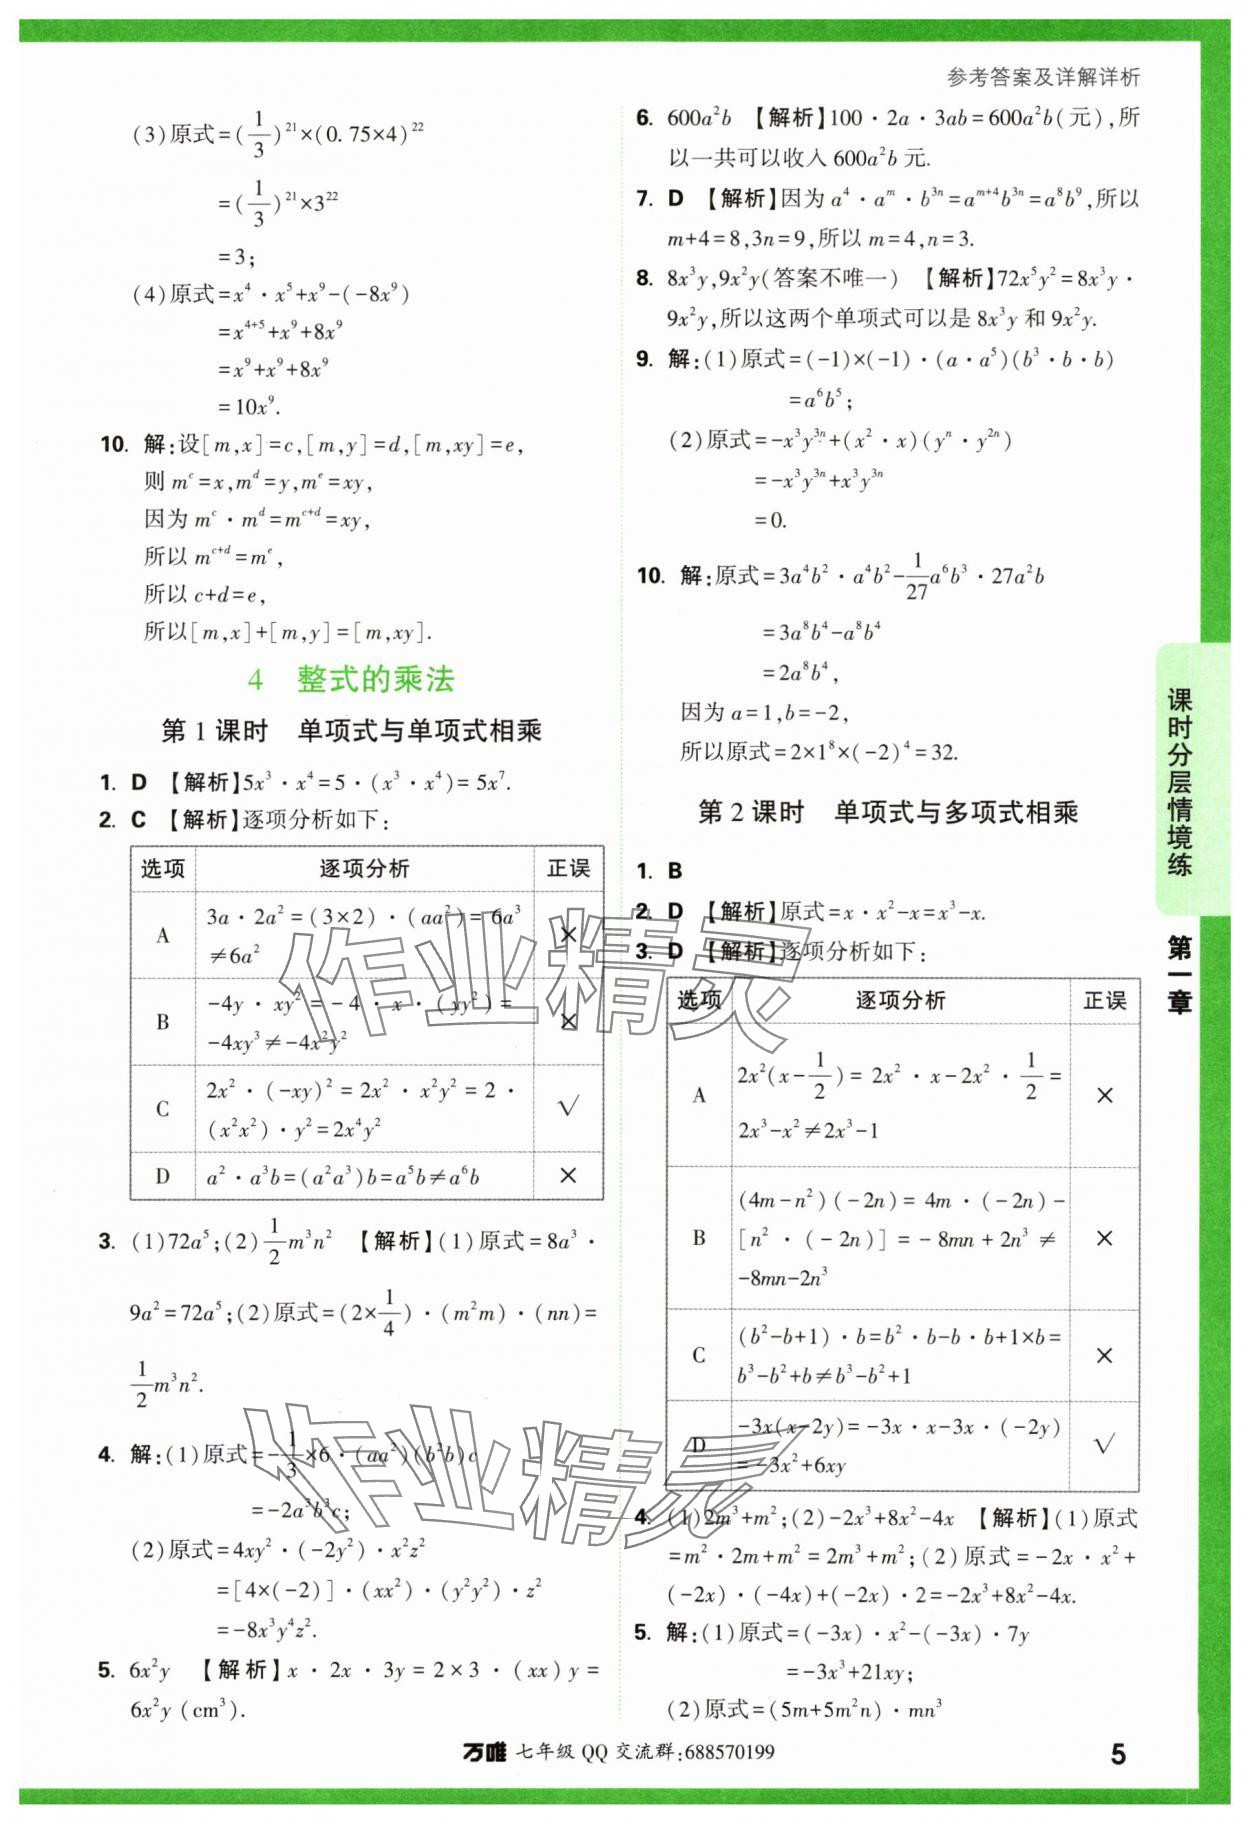 参考答案及详解详析
(3)原式=(1/3)²¹×(0.75×4)²²
=(1/3)²¹×3²²
=3;
(4)原式=x⁴·x⁵+x⁹-(-8x⁹)
=x⁴⁺⁵+x⁹+8x⁹
=x⁹+x⁹+8x⁹
=10x⁹.
10. 解:设[m,x]=c,[m,y]=d,[m,xy]=e,
则mᶜ=x,mᵈ=y,mᵉ=xy,
因为mᶜ·mᵈ=mᶜ⁺ᵈ=xy,
所以mᶜ⁺ᵈ=mᵉ,
所以c+d=e,
所以[m,x]+[m,y]=[m,xy].
4 整式的乘法
第1课时 单项式与单项式相乘
1. D 【解析】5x³·x⁴=5·(x³·x⁴)=5x⁷.
2. C 【解析】逐项分析如下:
选项 逐项分析 正误
A 3a·2a²=(3×2)·(aa²)=6a³
≠6a² ×
B -4y·xy²=-4·x·(yy²)=
-4xy³≠-4x²y² ×
C 2x²·(-xy)²=2x²·x²y²=2·
(x²x²)·y²=2x⁴y² √
D a²·a³b=(a²a³)b=a⁵b≠a⁶b ×
3. (1)72a⁵;(2)1/2m³n² 【解析】(1)原式=8a³·
9a²=72a⁵;(2)原式=(2×1/4)·(m²m)·(nn)=
1/2m³n².
4. 解:(1)原式=-1/3×6·(aa²)(b²b)c
=-2a³b³c;
(2)原式=4xy²·(-2y²)·x²z²
=[4×(-2)]·(xx²)·(y²y²)·z²
=-8x³y⁴z².
5. 6x²y 【解析】x·2x·3y=2×3·(xx)y=
6x²y(cm³).
6. 600a²b 【解析】100·2a·3ab=600a²b(元),所
以一共可以收入600a²b元.
7. D 【解析】因为a⁴·aᵐ·b³ⁿ=aᵐ⁺⁴b³ⁿ=a⁸b⁹,所以
m+4=8,3n=9,所以m=4,n=3.
8. 8x³y,9x²y(答案不唯一) 【解析】72x⁵y²=8x³y·
9x²y,所以这两个单项式可以是8x³y和9x²y.
9. 解:(1)原式=(-1)×(-1)·(a·a⁵)(b³·b·b)
=a⁶b⁵;
(2)原式=-x³y³ⁿ+(x²·x)(yⁿ·y²ⁿ)
=-x³y³ⁿ+x³y³ⁿ
=0.
10. 解:原式=3a⁴b²·a⁴b²-1/27a⁶b³·27a²b
=3a⁸b⁴-a⁸b⁴
=2a⁸b⁴,
因为a=1,b=-2,
所以原式=2×1⁸×(-2)⁴=32.
第2课时 单项式与多项式相乘
1. B
2. D 【解析】原式=x·x²-x=x³-x.
3. D 【解析】逐项分析如下:
选项 逐项分析 正误
A 2x²(x-1/2)=2x²·x-2x²·1/2=
2x³-x²≠2x³-1 ×
B (4m-n²)(-2n)=4m·(-2n)-
[n²·(-2n)]=-8mn+2n³≠
-8mn-2n³ ×
C (b²-b+1)·b=b²·b-b·b+1×b=
b³-b²+b≠b³-b²+1 ×
D -3x(x-2y)=-3x·x-3x·(-2y)
=-3x²+6xy √
4. (1)2m³+m²;(2)-2x³+8x²-4x 【解析】(1)原式
=m²·2m+m²=2m³+m²;(2)原式=-2x·x²+
(-2x)·(-4x)+(-2x)·2=-2x³+8x²-4x.
5. 解:(1)原式=(-3x)·x²-(-3x)·7y
=-3x³+21xy;
(2)原式=(5m+5m²n)·mn³
课时分层情境练
第一章
作业精灵
作业精灵
万唯 七年级QQ交流群:688570199
5